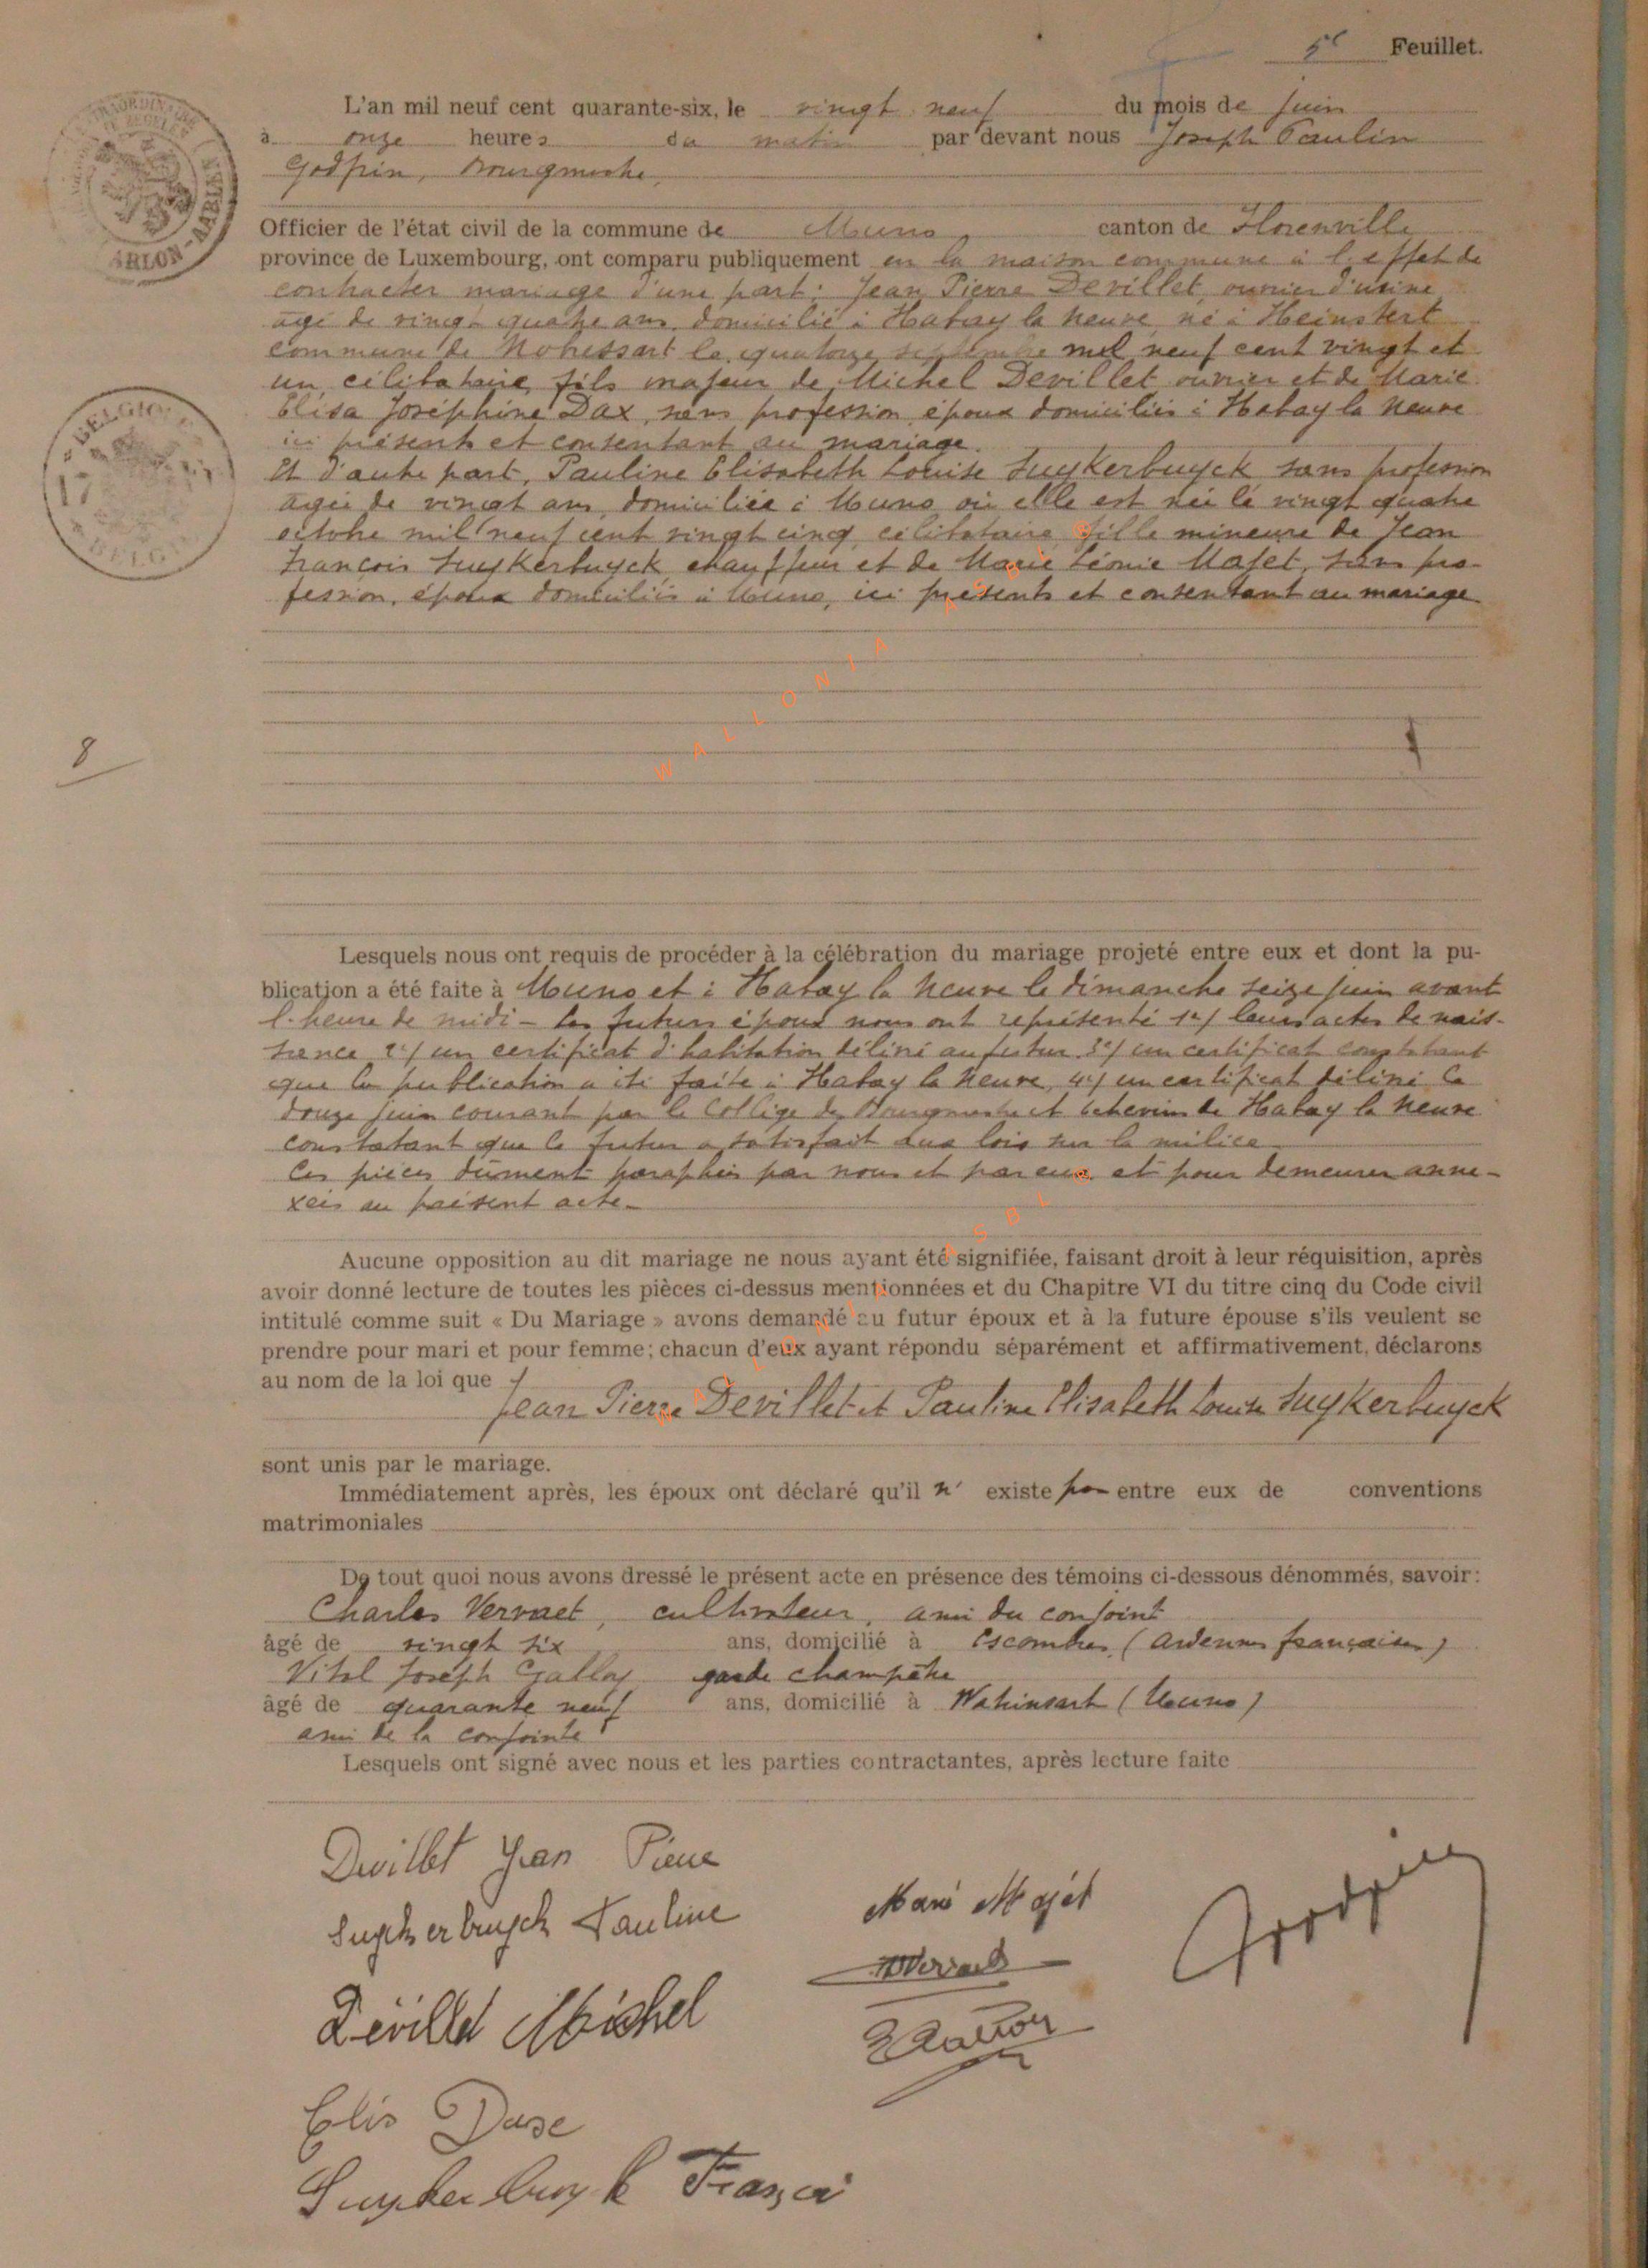 5e Feuillet.
L'an mil neuf cent quarante-six, le vingt neuf du mois de juin
à onze heures du matin par devant nous Joseph Paulin
Godfrin, Bourgmestre,
Officier de l'état civil de la commune de Muno, canton de Florenville
province de Luxembourg, ont comparu publiquement en la maison commune à l'effet de
contracter mariage d'une part: Jean Pierre Devillet, ouvrier d'usine
âgé de vingt quatre ans, domicilié à Habay la Neuve né à Heinstert
commune de Nobressart le quatorze septembre mil neuf cent vingt et
un, célibataire, fils majeur de Michel Devillet ouvrier et de Marie
Elisa Joséphine Dax, sans profession, époux domiciliés à Habay la Neuve
ici présents et consentant au mariage.
Et d'autre part, Pauline Elisabeth Louise Suykerbuyck sans profession
âgée de vingt ans, domiciliée à Muno où elle est née le vingt quatre
octobre mil neuf cent vingt cinq, célibataire, fille mineure de Jean
François Suykerbuyck, chauffeur et de Marie Léonie Majet, sans pro-
fession, époux domiciliés à Muno, ici présents et consentant au mariage
WALLONIA ASBL ©
8
Lesquels nous ont requis de procéder à la célébration du mariage projeté entre eux et dont la pu-
blication a été faite à Muno et à Habay la Neuve le dimanche seize juin avant
l'heure de midi - les futurs époux nous ont représenté 1°/ leurs actes de nais-
sance 2°/ un certificat d'habitation délivré au futur 3°/ un certificat constatant
que la publication a été faite à Habay la Neuve, 4°/ un certificat délivré le
douze juin courant par le Collège des Bourgmestre et Echevins de Habay la Neuve
constatant que le futur a satisfait aux lois sur la milice
Ces pièces dûment paraphées par nous et par eux et pour demeurer anne-
xées au présent acte.
Aucune opposition au dit mariage ne nous ayant été signifiée, faisant droit à leur réquisition, après
avoir donné lecture de toutes les pièces ci-dessus mentionnées et du Chapitre VI du titre cinq du Code civil
intitulé comme suit « Du Mariage » avons demandé au futur époux et à la future épouse s'ils veulent se
prendre pour mari et pour femme; chacun d'eux ayant répondu séparément et affirmativement, déclarons
au nom de la loi que
Jean Pierre Devillet et Pauline Elisabeth Louise Suykerbuyck
sont unis par le mariage.
Immédiatement après, les époux ont déclaré qu'il n' existe pas entre eux de conventions
matrimoniales
De tout quoi nous avons dressé le présent acte en présence des témoins ci-dessous dénommés, savoir:
Charles Vervaet, cultivateur, ami du conjoint
âgé de vingt six ans, domicilié à Escombres (Ardennes françaises)
Vital Joseph Galloy garde champêtre
âgé de quarante neuf ans, domicilié à Watrinsart (Muno)
ami de la conjointe
Lesquels ont signé avec nous et les parties contractantes, après lecture faite
Devillet Jean Pierre
Suykerbuyck Pauline
Marie Majet
Godfrin
Devillet Michel
Elis Daxe
Suykerbuyk François
BELGIQUE
BELGIE
ARLON-AARLEN